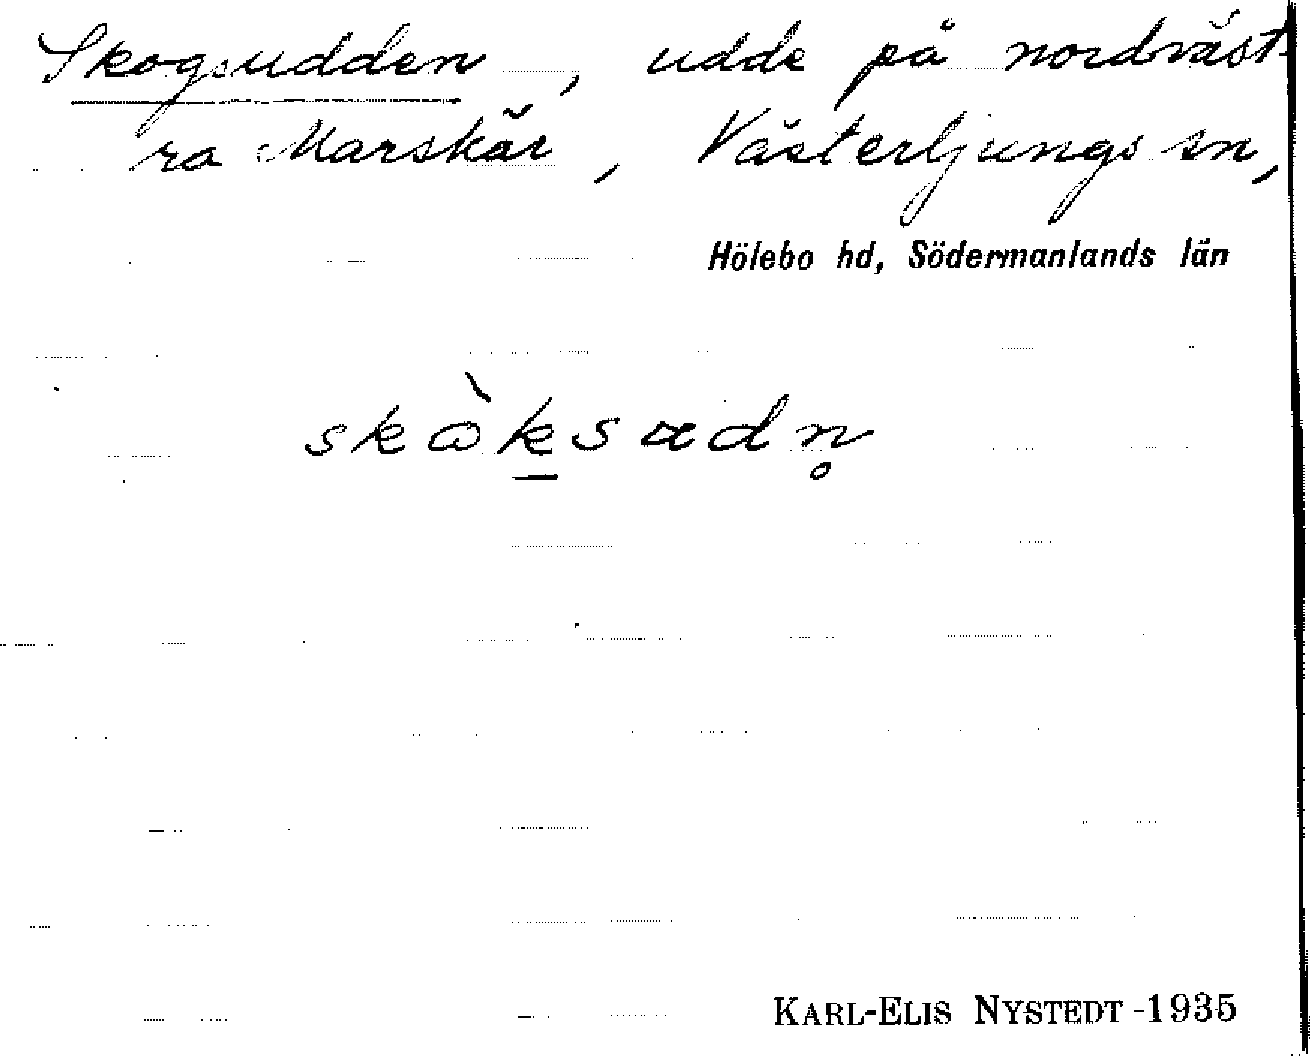 Skogsudden, udde på nordväst-
ra Marskär, Västerljungs sn,
Hölebo hd, Södermanlands län
skɷ̀k̠sɑdn̥
KARL-ELIS NYSTEDT -1935